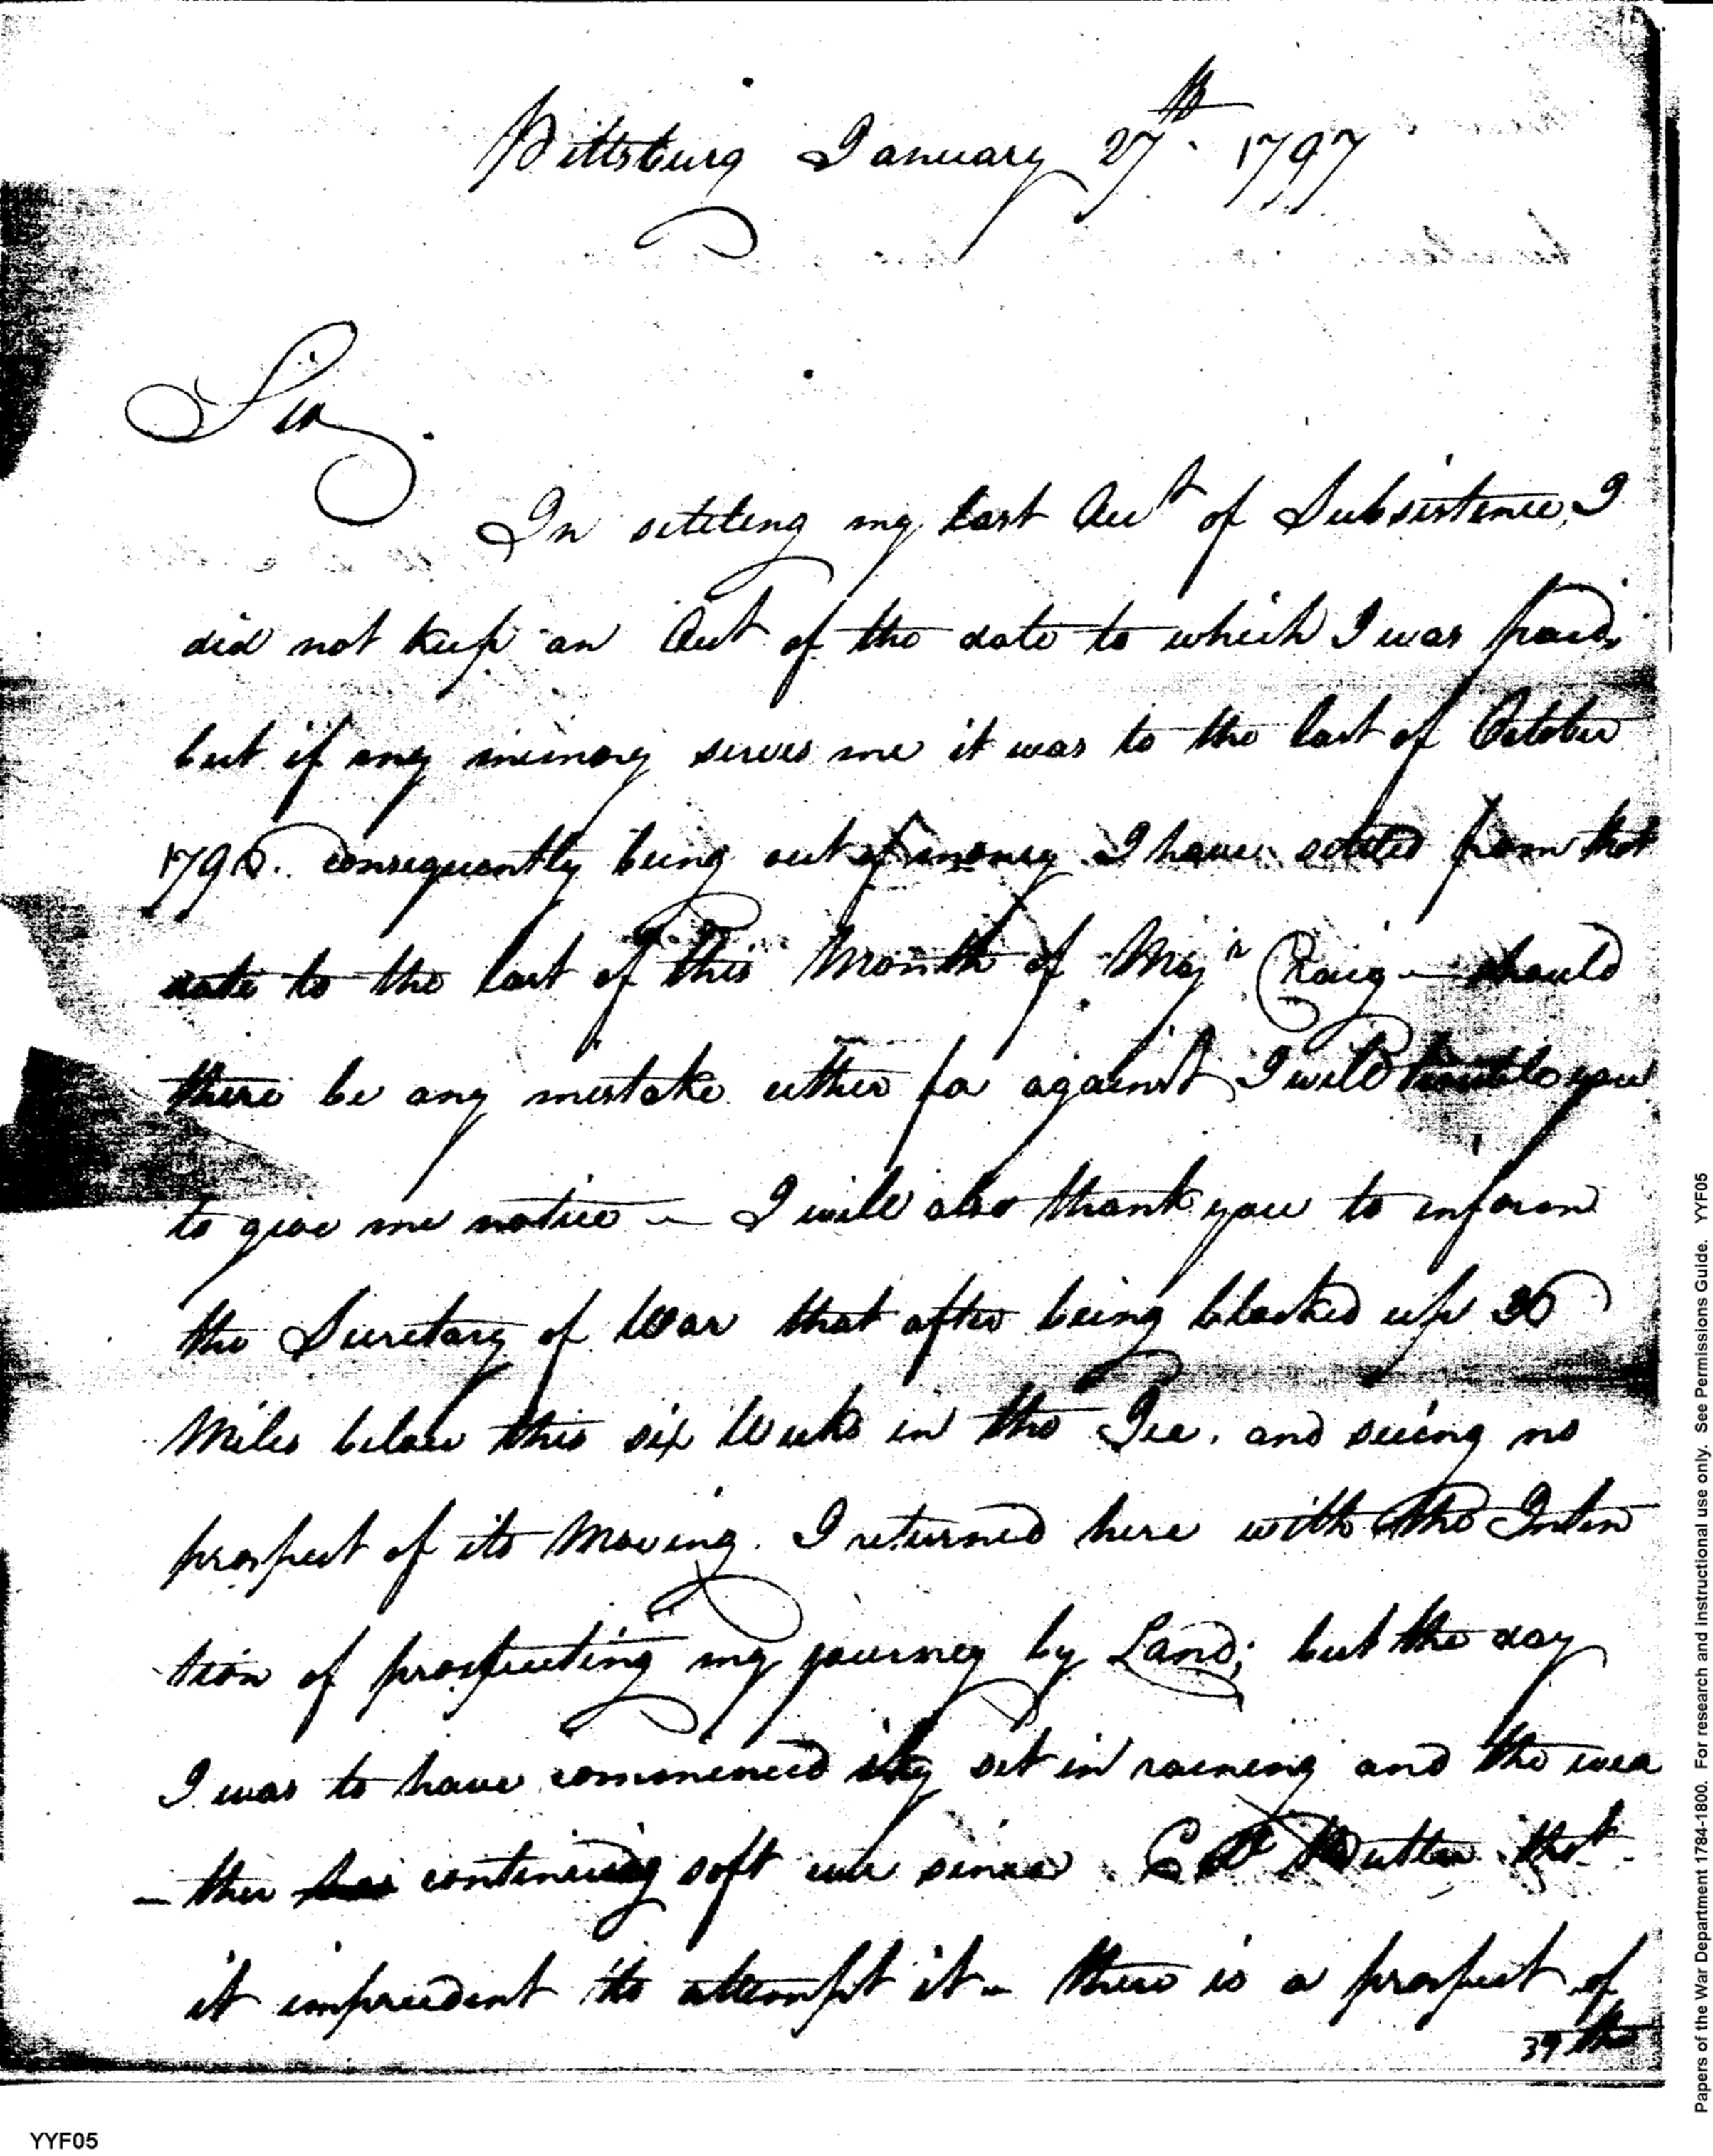 Pittsburg January 27th. 1797
Sir.
In settling my last Acct of Subsistence, I
did not keep an Acct of the date to which I was paid,
but if my memory serves me it was to the last of October
1796. consequantly being out of money I have settled from that
date to the last of this Month of Majr Craig – should
there be any mistake either for against I will trouble you
to give me notice – I will also thank you to inform
the Secretary of War that after being blocked up 30
Miles below this six Weeks in the Ice, and seeing no
prospect of its Moving. I returned here with the Inten
tion of prosecuting my journey by Land; but the day
I was to have commenced it set in raining and the wea
– ther continuing soft ever since. Butler that
it imprudent to attempt it – there is a prospect of
39 the
Papers of the War Department 1784-1800. For research and instructional use only. See Permissions Guide. YYF05
YYF05